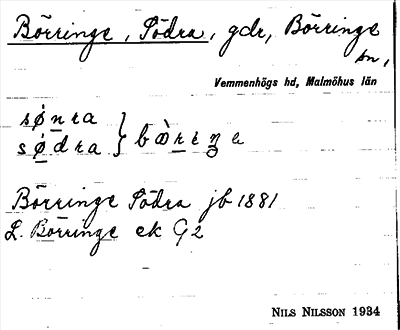 Börringe, Södra, gdr, Börringe
sn,
Vemmenhögs hd, Malmöhus län
sǿnra
sǿdra } bœ̀riŋe
Börringe Södra jb 1881
L. Börringe ek G2
NILS NILSSON 1934